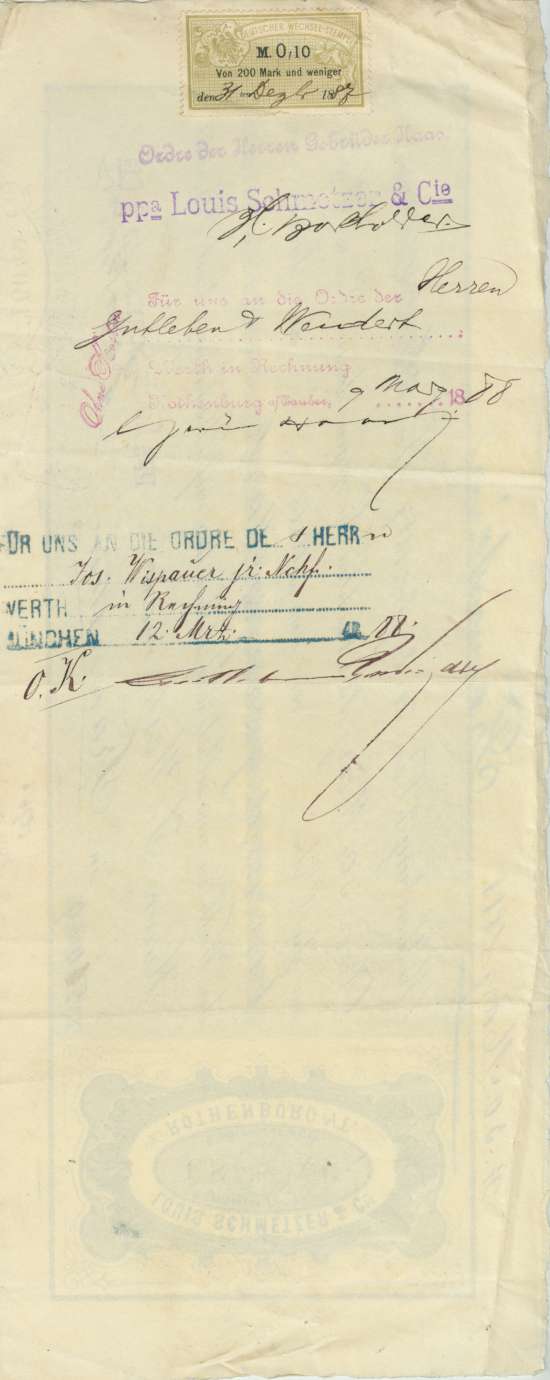 DEUTSCHER WECHSEL-STEMPEL
M. 0,10
Von 200 Mark und weniger
den 31 ten Dezbr 1887
Ordre der Herren Gebrüder Haas
ppa Louis Schmetzer & Cie
Herren
Für uns an die Ordre der
Gutleben & Weidert
Werth in Rechnung
Rothenburg a/Tauber, 9 März 1888
FÜR UNS AN DIE ORDRE DES HERRn
Jos. Wispauer jr. Nchf.
WERTH in Rechnung
MÜNCHEN 12. Mrz. 18 88.
O. K.
ROTHENBURG a/T.
LOUIS SCHMETZER & Cie